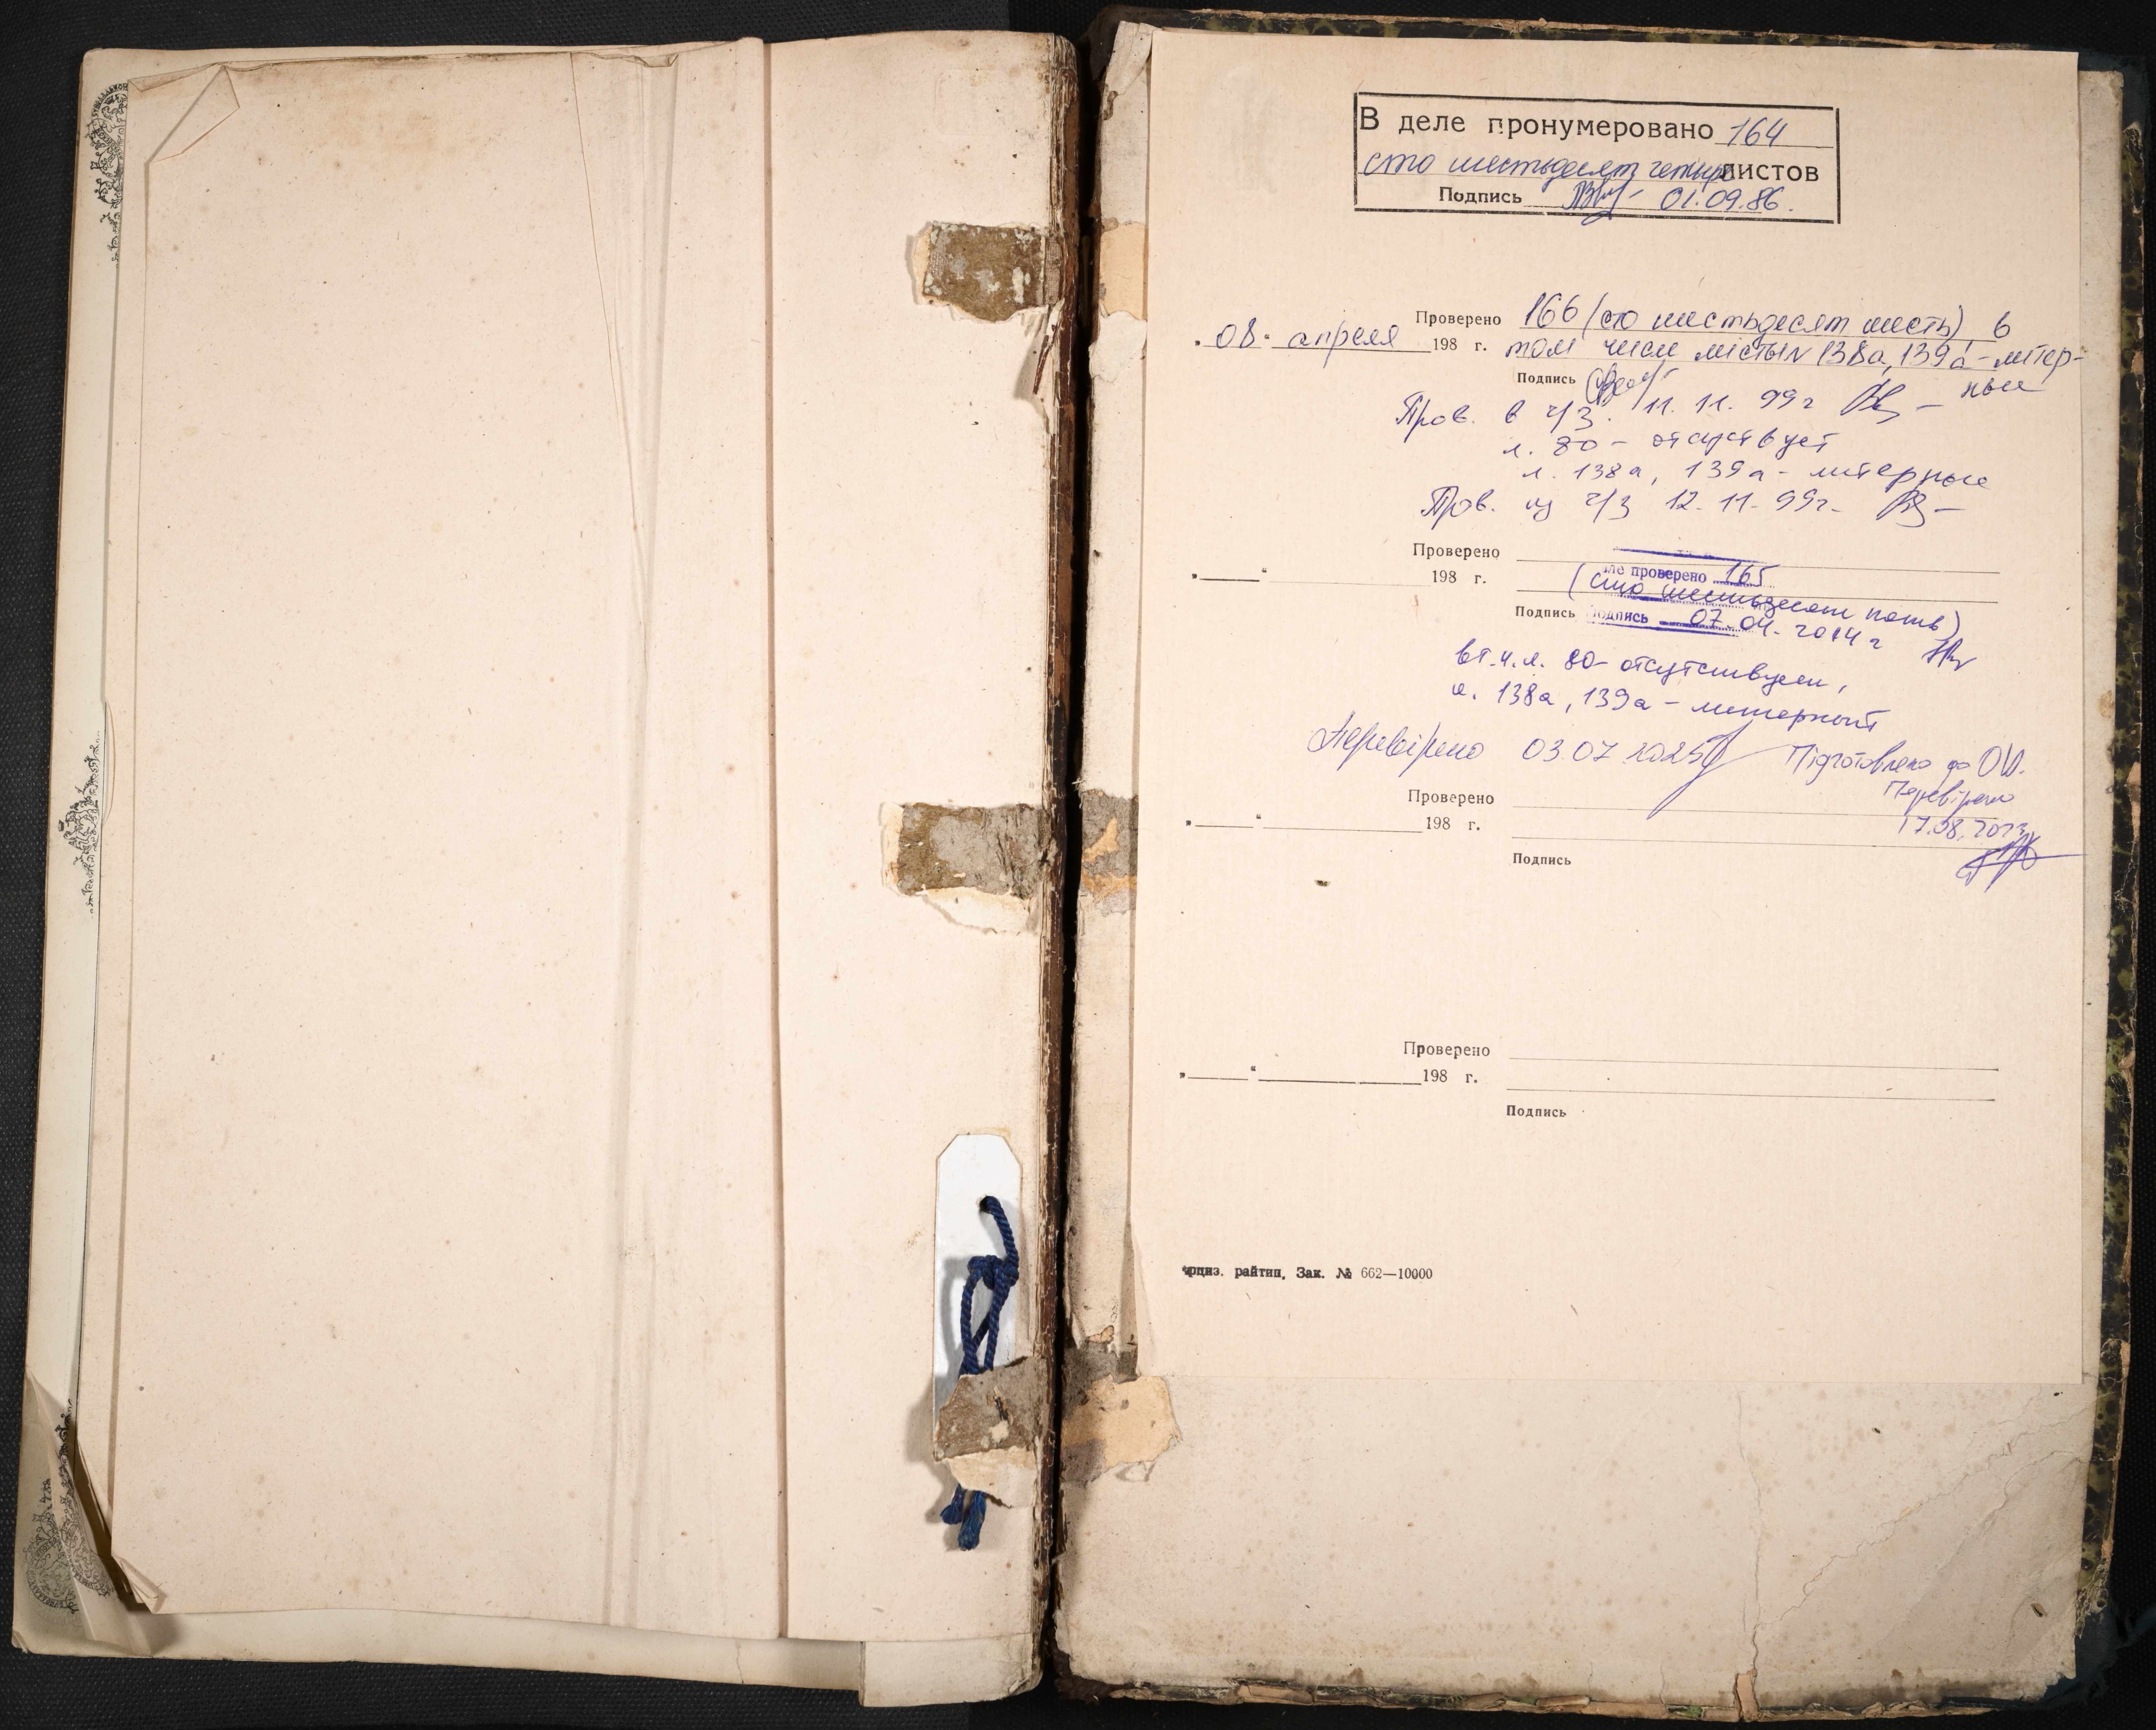 В деле пронумеровано 164
сто шестьдесят четыре листов
Подпись 01.09.86.
Проверено 166 (сто шестьдесят шесть), в
„08“ апреля 198 г. том числе листы № 138а, 139а - литер-
ные
Подпись
Пров. в ч/з. 11.11.99 г
л. 80 - отсуствует
л. 138а, 139а - литерные
Пров. из ч/з 12.11.99г.
Проверено
„ “ 198 г. ле проверено 165
(сто шестьдесят пять)
Подпись подпись 07.04.2014 г
в т.ч. л. 80 - отсутствует,
л. 138а, 139а - литерный
Перевірено 03 07 2025 Підготовлено до ОЦ.
Перевірено
Проверено
„ “ 198 г. 17.08.
Подпись
Проверено
„ “ 198 г.
Подпись
райтип, Зак. № 662—10000